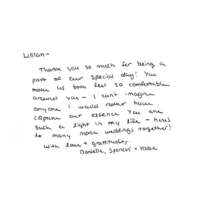 Lilian-
Thank you so much for being a
part of our special day! You
make us both feel so comfortable
around you - I can't imagine
anyone I would rather have
capture our essence. You are
such a light in my life - here's
to many more weddings together!
With love + gratitude,
Danielle, Spencer + Kobe